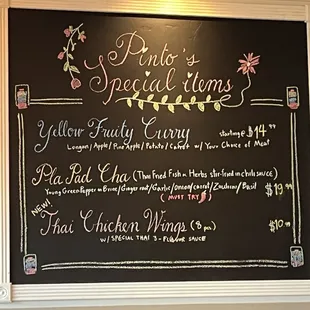 Pinto's
Special items
Yellow Fruity Curry starting @ $14.99
Longan/Apple/Pineapple/Potato/Carrot w/ Your Choice of Meat
Pla Pad Cha (Thai Fried Fish w Herbs stir-fried in chili sauce)
Young Green Pepper on Brine/Ginger root/Garlic/onion/ /Zucchini/Basil $19.99
(MUST TRY)
NEW!
Thai Chicken Wings (8 pcs) $10.99
w/ SPECIAL THAI 3-FLAVOR SAUCE